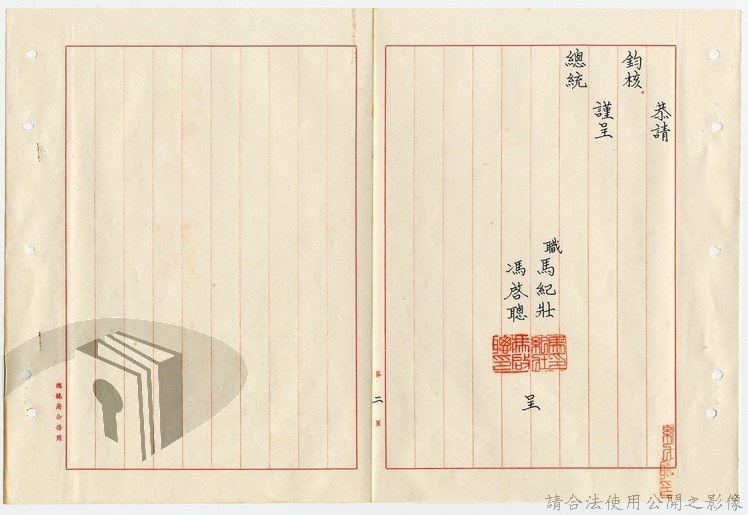 恭請
鈞核
謹呈
總統
職馬紀壯
馮啓聰
呈
第二頁
總統府公務用
請合法使用公開之影像